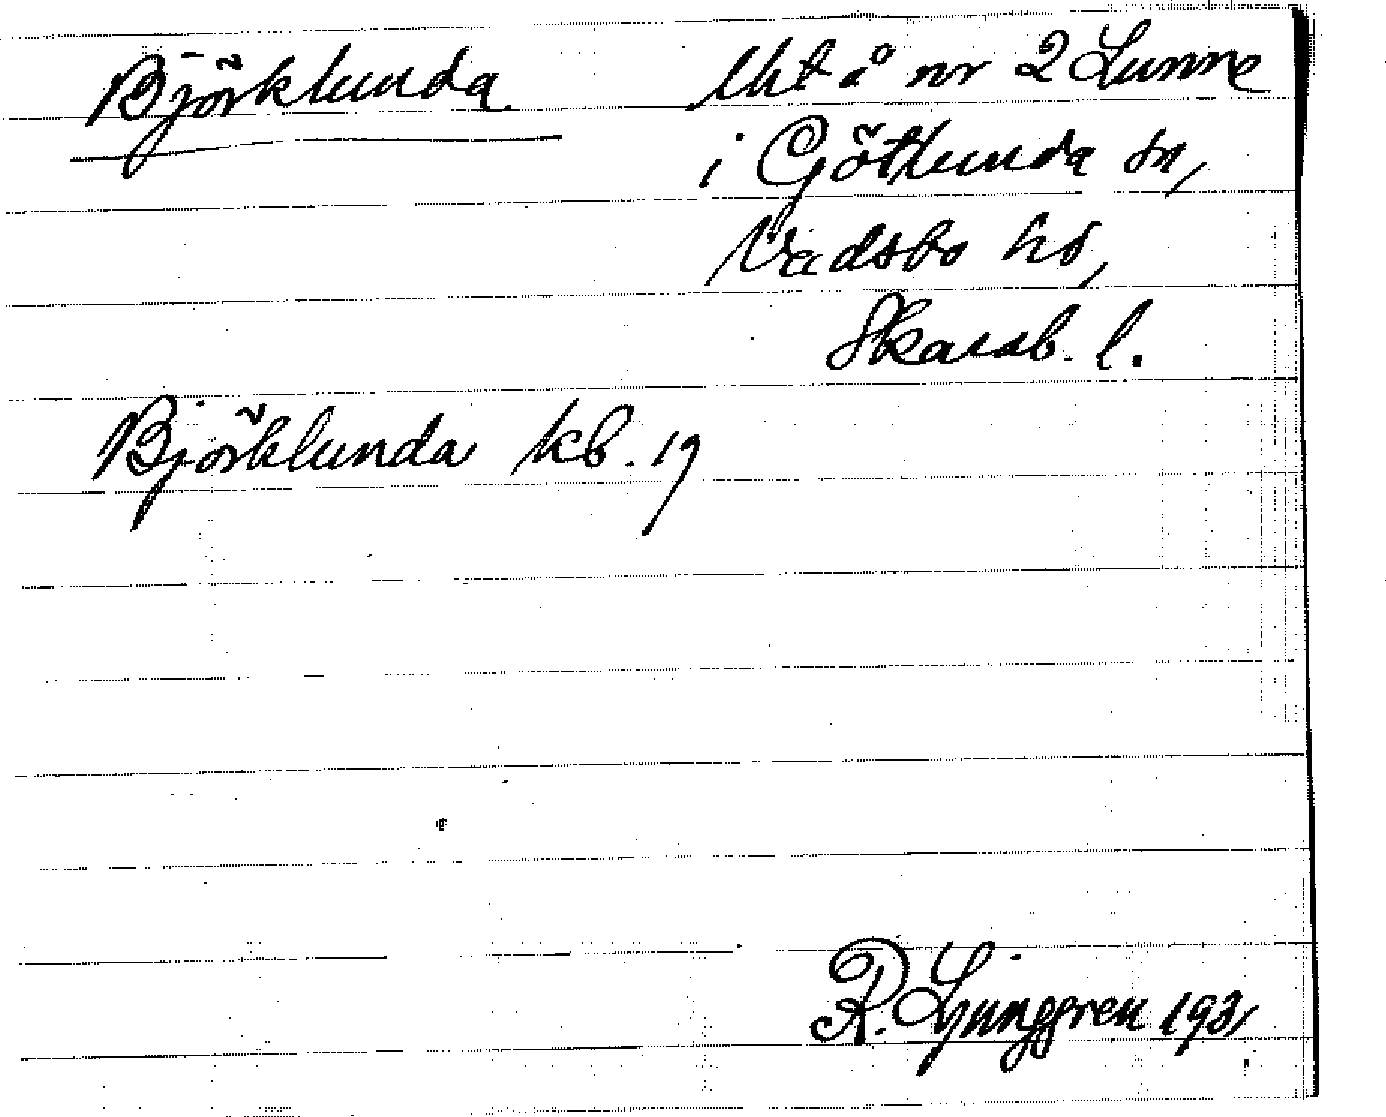 Björklunda
Lht å nr 2 Lunne
i Götlunda sn,
Vadsbo hd,
Skarab. l.
Björklunda kb. 19
R. Ljunggren 1931